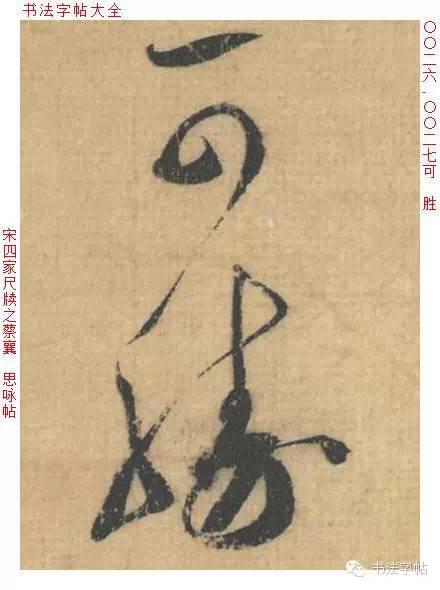 书法字帖大全
〇〇二六-〇〇二七可 胜
可勝
宋四家尺牍之蔡襄 思咏帖
书法字帖